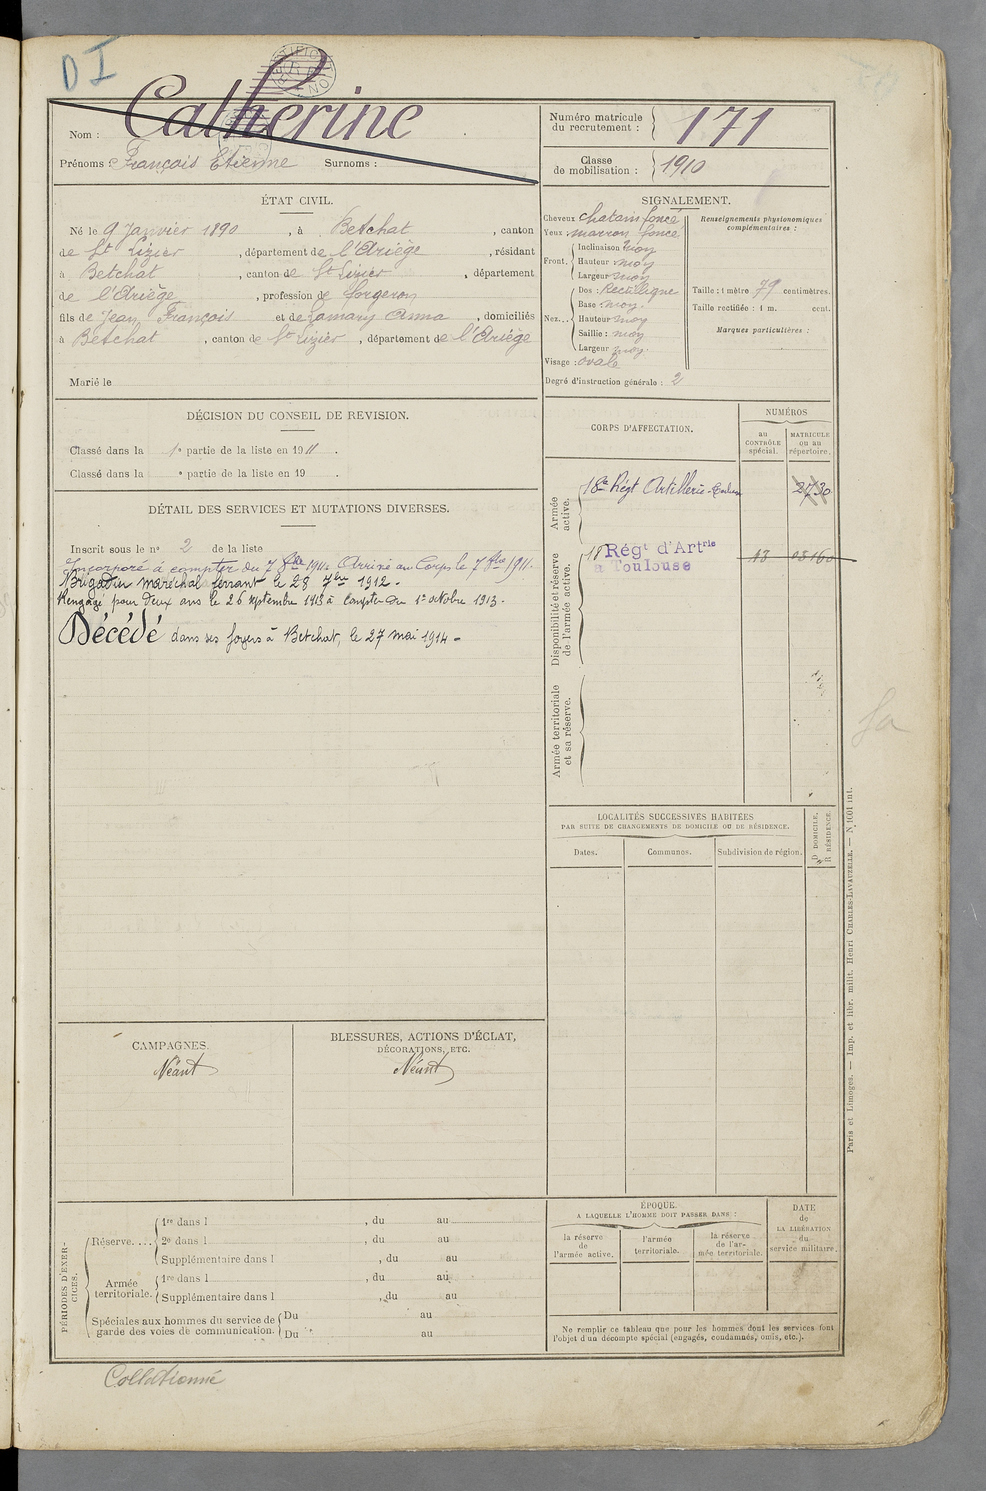 D I
Catherine
Nom :
Prénoms : François Etienne Surnoms :
Numéro matricule du recrutement : 171
Classe de mobilisation : 1910
ÉTAT CIVIL.
Né le 9 Janvier 1890, à Betchat, canton
de St Lizier, département de l'Ariège, résidant
à Betchat, canton de St Lizier, département
de l'Ariège, profession de forgeron
fils de Jean François et de Lamary Anna, domiciliés
à Betchat, canton de St Lizier, département de l'Ariège
Marié le
SIGNALEMENT.
Cheveux chatain foncé
Yeux marron foncé
Front. Inclinaison moy
Hauteur moy
Largeur moy
Nez... Dos : Rectiligne
Base : moy.
Hauteur moy
Saillie : moy
Largeur moy.
Visage : ovale
Degré d'instruction générale : 2
Renseignements physionomiques complémentaires :
Taille : 1 mètre 79 centimètres.
Taille rectifiée : 1 m. cent.
Marques particulières :
DÉCISION DU CONSEIL DE REVISION.
Classé dans la 1e partie de la liste en 1911.
Classé dans la e partie de la liste en 19 .
DÉTAIL DES SERVICES ET MUTATIONS DIVERSES.
Inscrit sous le no 2 de la liste
Incorporé à compter du 7 8bre 1911. Arrivé au Corps le 7 8bre 1911.
Brigadier maréchal ferrant le 28 7bre 1912.-
Rengagé pour deux ans le 26 septembre 1913 à compter du 1er octobre 1913.
Décédé dans ses foyers à Betchat, le 27 mai 1914 -
CORPS D'AFFECTATION.
NUMÉROS
au CONTRÔLE spécial.
MATRICULE ou au répertoire.
Armée active.
18e Régt Artillerie 2730
Disponibilité et réserve de l'armée active.
18 Régt d'Artrie
à Toulouse
13 03160
Armée territoriale et sa réserve.
LOCALITÉS SUCCESSIVES HABITÉES
PAR SUITE DE CHANGEMENTS DE DOMICILE OU DE RÉSIDENCE.
Dates. Communes. Subdivision de région.
D DOMICILE.
R RÉSIDENCE.
CAMPAGNES.
Néant
BLESSURES, ACTIONS D'ÉCLAT,
DÉCORATIONS, ETC.
Néant
PÉRIODES D'EXERCICES.
Réserve.... 1re dans l , du au
2e dans l , du au
Supplémentaire dans l , du au
Armée territoriale. 1re dans l , du au
Supplémentaire dans l , du au
Spéciales aux hommes du service de garde des voies de communication. Du au
Du au
ÉPOQUE
A LAQUELLE L'HOMME DOIT PASSER DANS :
la réserve de l'armée active.
l'armée territoriale.
la réserve de l'armée territoriale.
DATE de LA LIBÉRATION du service militaire.
Ne remplir ce tableau que pour les hommes dont les services font
l'objet d'un décompte spécial (engagés, condamnés, omis, etc.).
Paris et Limoges. — Imp. et libr. milit. Henri CHARLES-LAVAUZELLE. — N 1601 int.
Collationné